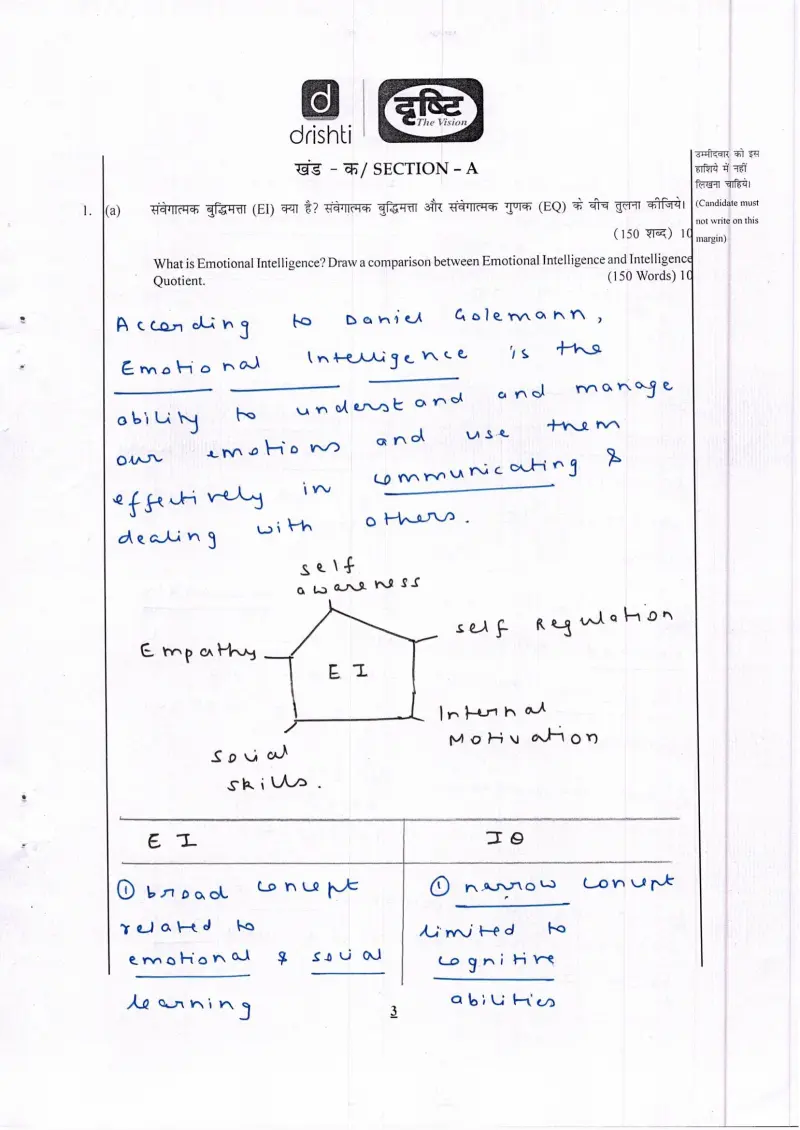 drishti
दृष्टि
The Vision
खंड - क/ SECTION - A
उम्मीदवार को इस
हाशिये में नहीं
लिखना चाहिये।
(Candidate must
not write on this
margin)
1. (a) संवेगात्मक बुद्धिमत्ता (EI) क्या है? संवेगात्मक बुद्धिमत्ता और संवेगात्मक गुणक (EQ) के बीच तुलना कीजिये।
(150 शब्द) 10
What is Emotional Intelligence? Draw a comparison between Emotional Intelligence and Intelligence
Quotient. (150 Words) 10
According to Daniel Golemann,
Emotional Intelligence is the
ability to understand and and manage
our emotions and use them
effectively in communicating &
dealing with others.
self
awareness
Empathy
self Regulation
E I
Internal
Motivation
Social
skills.
E I
I Q
① broad concept
related to
emotional & social
learning
① narrow concept
limited to
cognitive
abilities
3